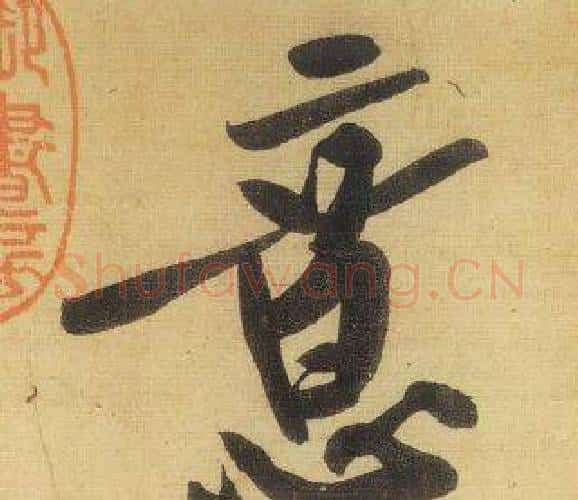 意
Shufawang.CN